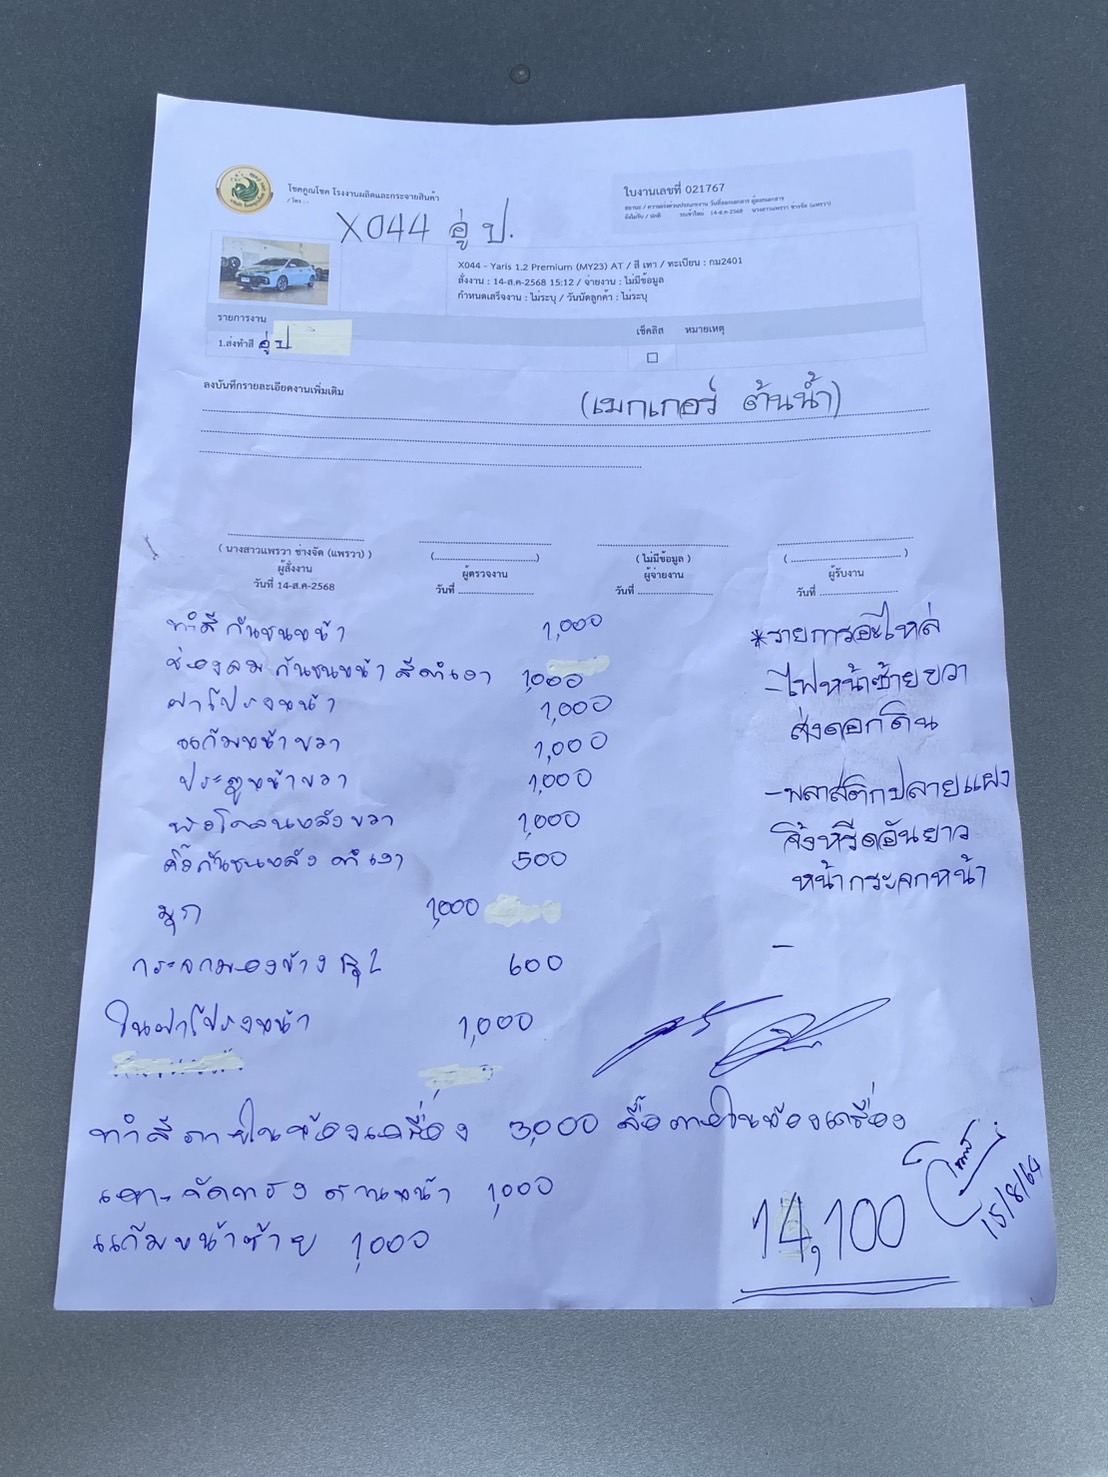 โชคคูณโชค โรงงานผลิตและกระจายสินค้า
/ โทร : -
ใบงานเลขที่ 021767
X044 อู่ ป.
X044 - Yaris 1.2 Premium (MY23) AT / สี เทา / ทะเบียน : กม2401
สั่งงาน : 14-ส.ค-2568 15:12 / จ่ายงาน : ไม่มีข้อมูล
กำหนดเสร็จงาน : ไม่ระบุ / วันนัดลูกค้า : ไม่ระบุ
รายการงาน เช็คลิส หมายเหตุ
1.ส่งทำสี อู่ ป
ลงบันทึกรายละเอียดงานเพิ่มเติม
(เมกเกอร์ ต้นน้ำ)
( นางสาวแพรวา ช่างจัด (แพรวา) ) (........................) ( ไม่มีข้อมูล ) ( ........................ )
ผู้สั่งงาน ผู้ตรวจงาน ผู้จ่ายงาน ผู้รับงาน
วันที่ 14-ส.ค-2568 วันที่ .................. วันที่ .................. วันที่ ..................
ทำสี กันชนหน้า 1,000
ช่องลม กันชนหน้า สีดำเงา 1,000
ฝากระโปรงหน้า 1,000
แก้มหน้าขวา 1,000
ประตูหน้าขวา 1,000
หลังขวา 1,000
กันชนหลัง ดำเงา 500
มุก 1,000
กระจกมองข้าง 600
ในฝากระโปรงหน้า 1,000
ทำสีภายในห้องเครื่อง 3,000 ภายในห้องเครื่อง
เคาะ-จัดทรง คานหน้า 1,000
แก้มหน้าซ้าย 1,000
*รายการอะไหล่
-ไฟหน้าซ้ายขวา
ส่งดอกดิน
-พลาสติกปลายแผง
จิ้งหรีดอันยาว
หน้ากระจกหน้า
-
14,100